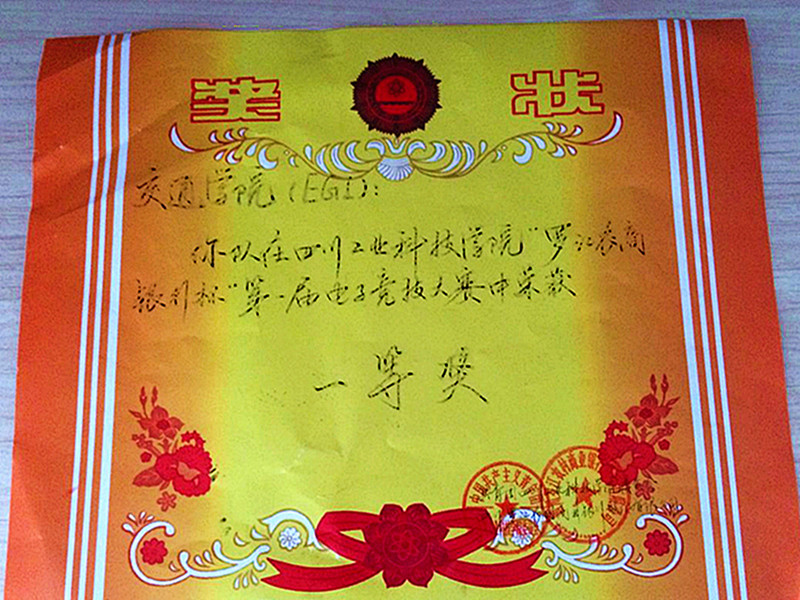 奖状
交通学院(EGI):
你队在四川工业科技学院"罗江农商
银行杯"第一届电子竞技大赛中荣获
一等奖